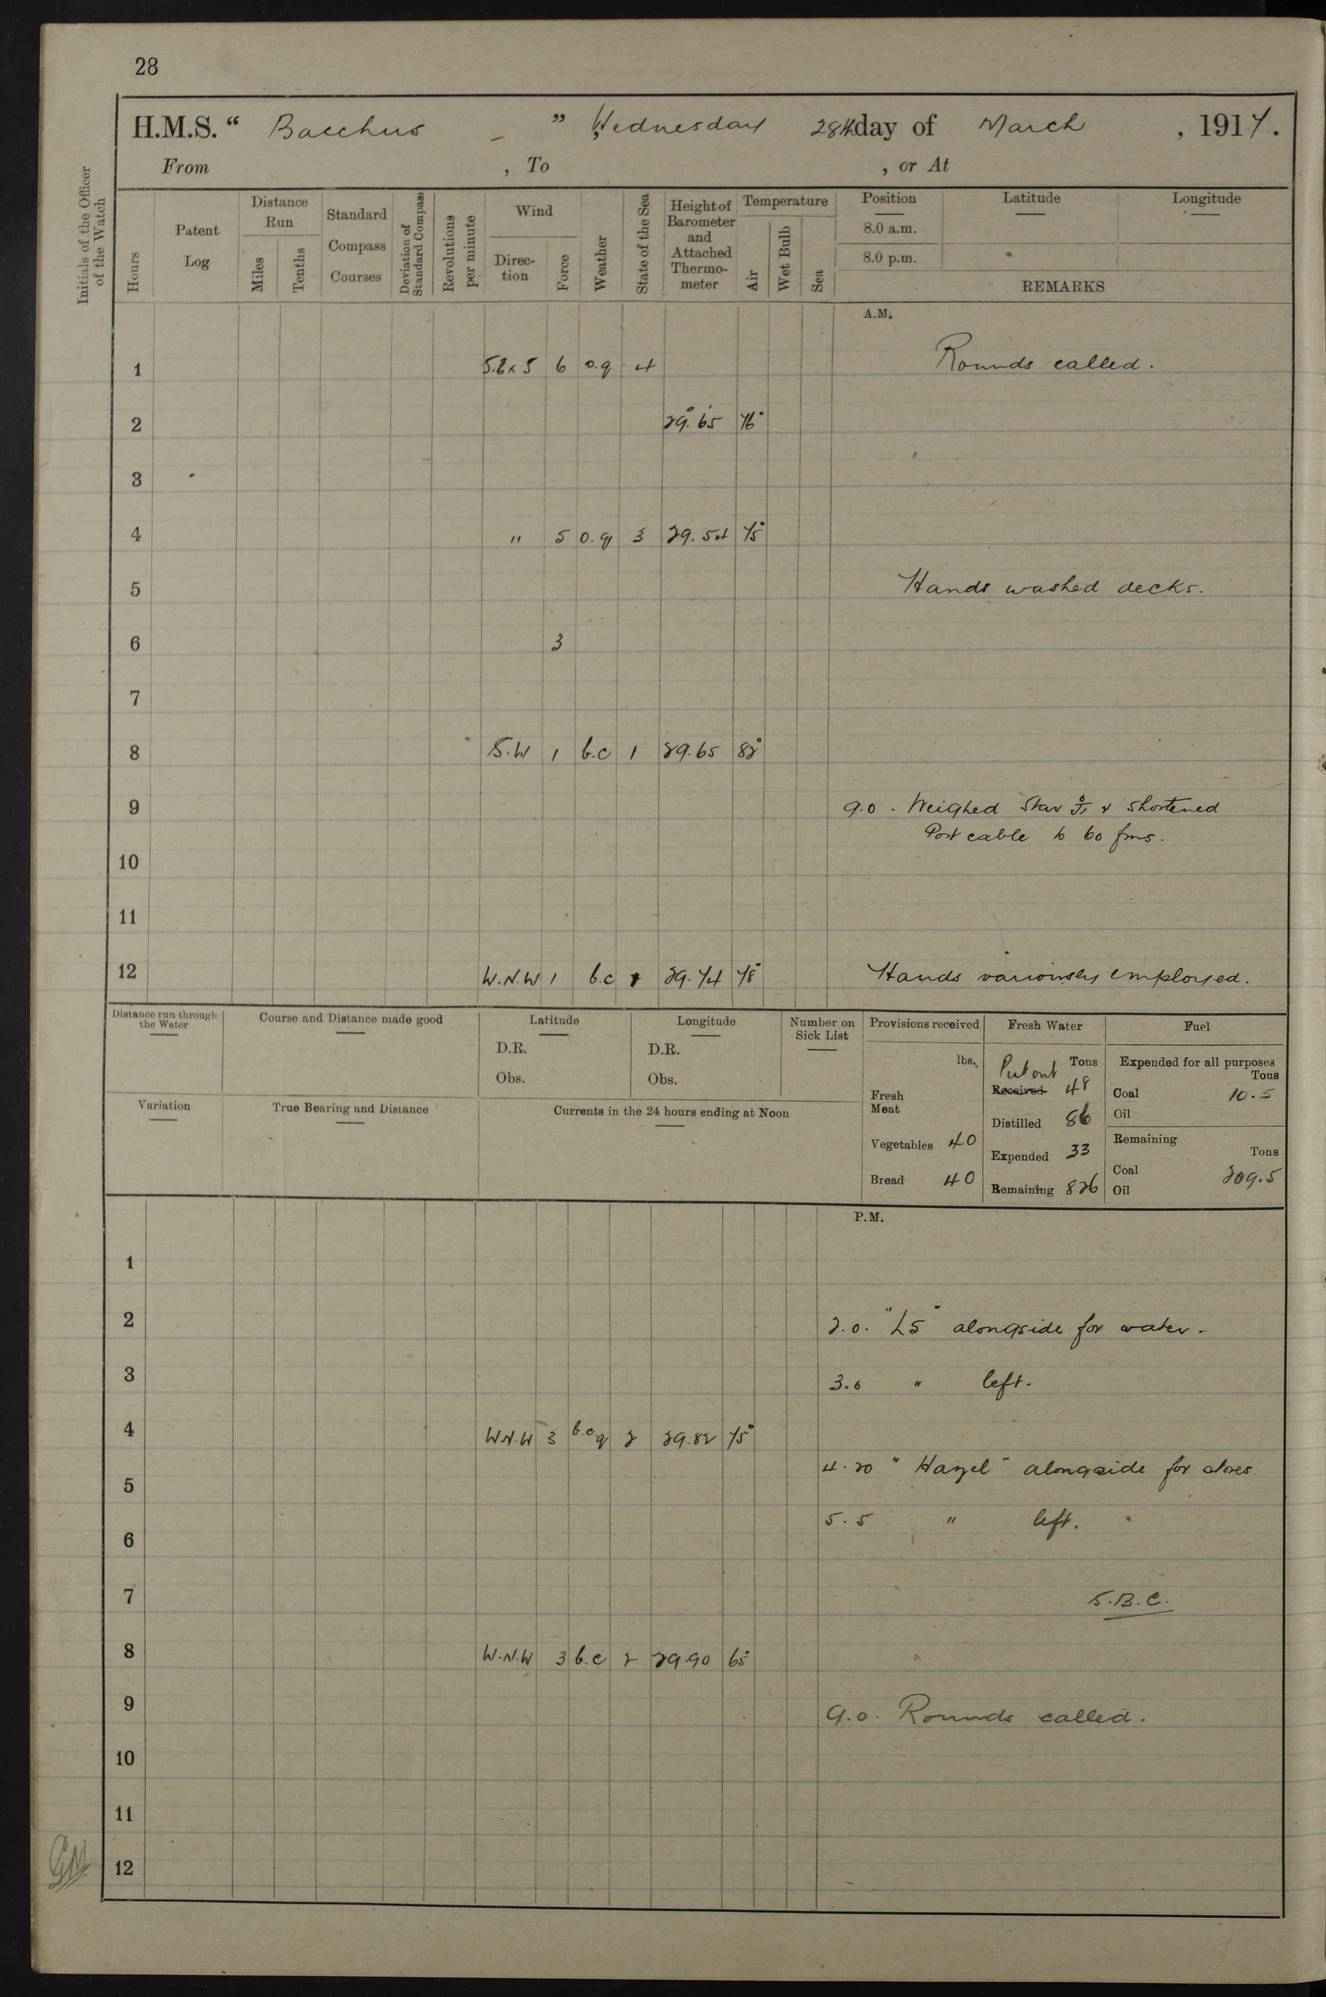 28
H.M.S. “ Bacchus ” Wednesday 28th day of March , 1917.
From , To , or At
Initials of the Officer of the Watch
Hours
Patent Log
Distance Run
Miles
Tenths
Standard Compass Courses
Deviation of Standard Compass
Revolutions per minute
Wind
Direction
Force
Weather
State of the Sea
Height of Barometer and Attached Thermometer
Temperature
Air
Wet Bulb
Sea
Position Latitude Longitude
8.0 a.m.
8.0 p.m.
REMARKS
A.M.
1 S.E x S 6 o.q 4 Rounds called.
2 29.65 76°
3
4 " 5 o.q 3 29.54 75°
5 Hands washed decks.
6 3
7
8 S.W 1 b.c 1 29.65 82°
9 9.0. Weighed Star & shortened
Port cable to 60 fms.
10
11
12 W.N.W 1 b.c 29.74 78° Hands variously employed.
Distance run through the Water
Course and Distance made good
Latitude
D.R.
Obs.
Longitude
D.R.
Obs.
Number on Sick List
Provisions received
lbs.
Fresh Meat
Vegetables 40
Bread 40
Fresh Water
Tons
Put out
Received 48
Distilled 86
Expended 33
Remaining 826
Fuel
Expended for all purposes
Tons
Coal 10.5
Oil
Remaining
Tons
Coal 209.5
Oil
Variation
True Bearing and Distance
Currents in the 24 hours ending at Noon
P.M.
1
2 2.0. "L5" alongside for water.
3 3.0 " left.
4 W.N.W 3 b.c q 2 29.82 75°
4.20 "Hazel" alongside for stores.
5
5.5 " left.
6
7 S.B.C.
8 W.N.W 3 b.c 2 29.90 65°
9 9.0. Rounds called.
10
11
12